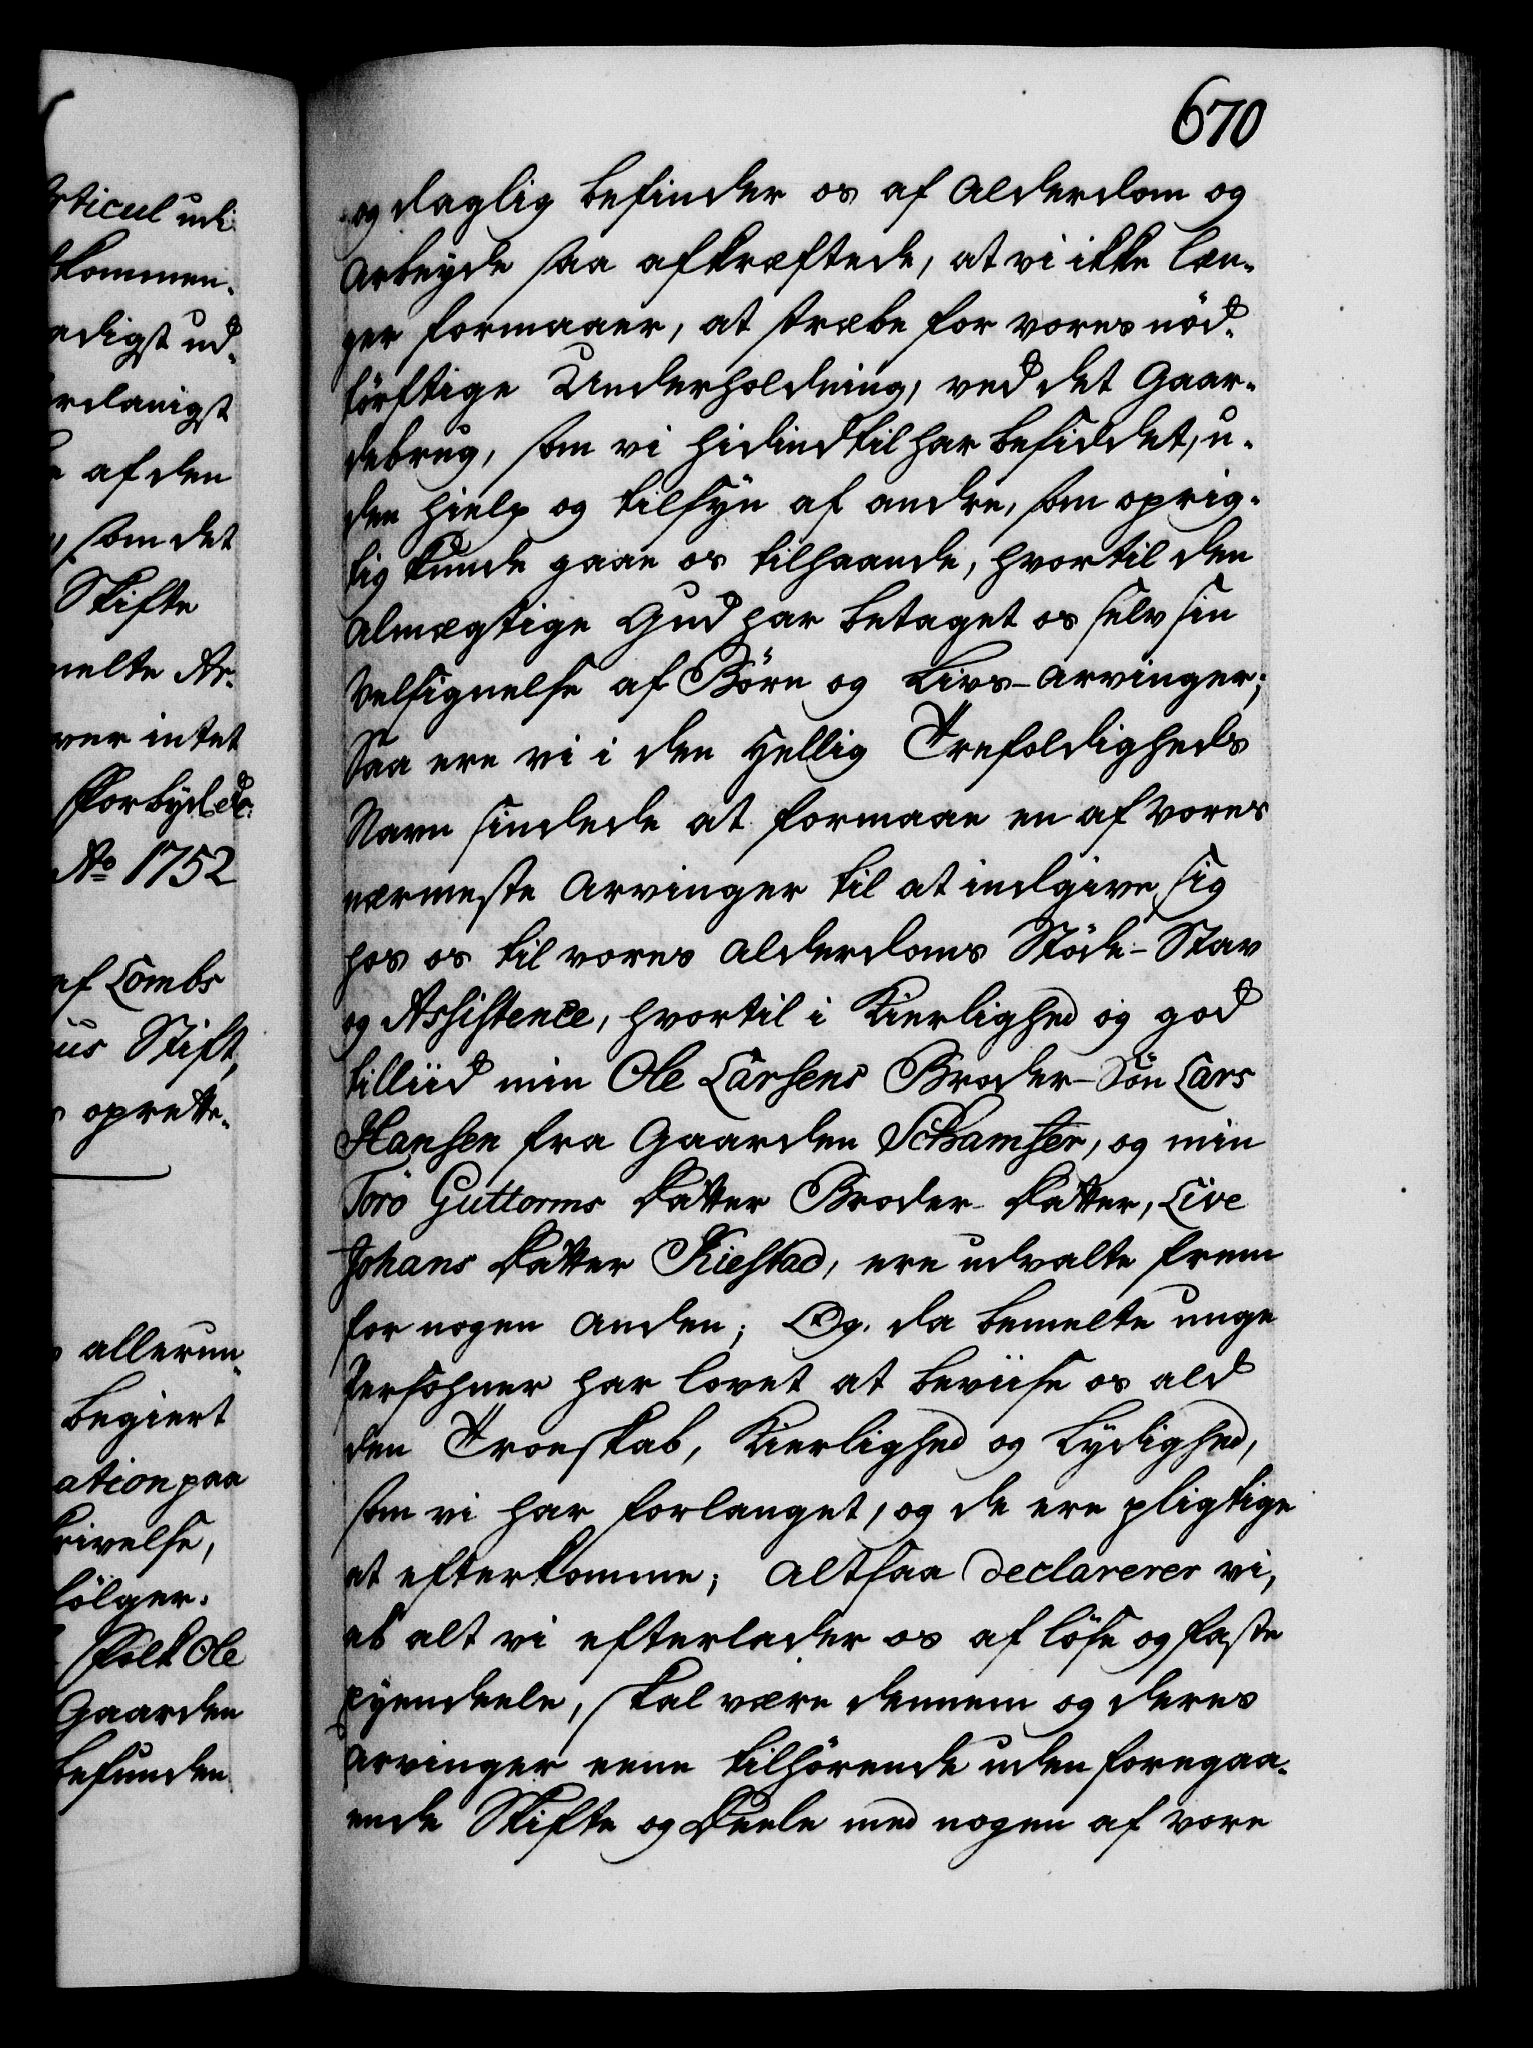 670
og daglig befinder os af Alderdom og
Arbeyde saa afkræftede, at vi ikke læn-
ger formaaer, at stræbe for vores nöd-
törftige Underholdning, ved det Gaar-
debrug, som vi hidindtil har besiddet, u-
den Hielp og tilsyn af andre, som oprig-
tig kunde gaae os tilhaande, hvortil den
Almægtige Gud har betaget os selv sin
Velsignelse af Börn og Livs-Arvinger;
Saa ere vi i den Hellig Trefoldigheds
Navn sindede at formaae en af vores
nærmeste Arvinger til at indgive sig
hos os til vores Alderdoms Stöde-Stav
og Assistence, hvortil i Kierlighed og god
tilliid min Ole Larsens Broder-Sön Lars
Hansen fra Gaarden Schamser, og min
Torö Guttorms Datter Broder-Datter, Live
Johans Datter Kiestad, ere udvalte frem
for nogen Anden; Og da bemelte unge
Persohner har lovet at beviise os ald
den Troeskab, Kierlighed og Lydighed,
som vi har forlanget, og de ere pligtige
at efterkomme; Altsaa Declarerer vi,
at alt vi efterlader os af löse og faste
Eyendeele, skal være dennem og deres
Arvinger eene tilhörende uden foregaa-
ende Skifte og Deele med nogen af vore
Articul udi
kommen-
adigst ud-
rdanigst
af den
som det
Skifte
melte Ar-
ver intet
Forbydede
Ao 1752
af Lombs
uus Stift,
oprette-
allerun-
begiert
ation paa
krivelse,
fölger.
Folk Ole
Gaarden
befunden